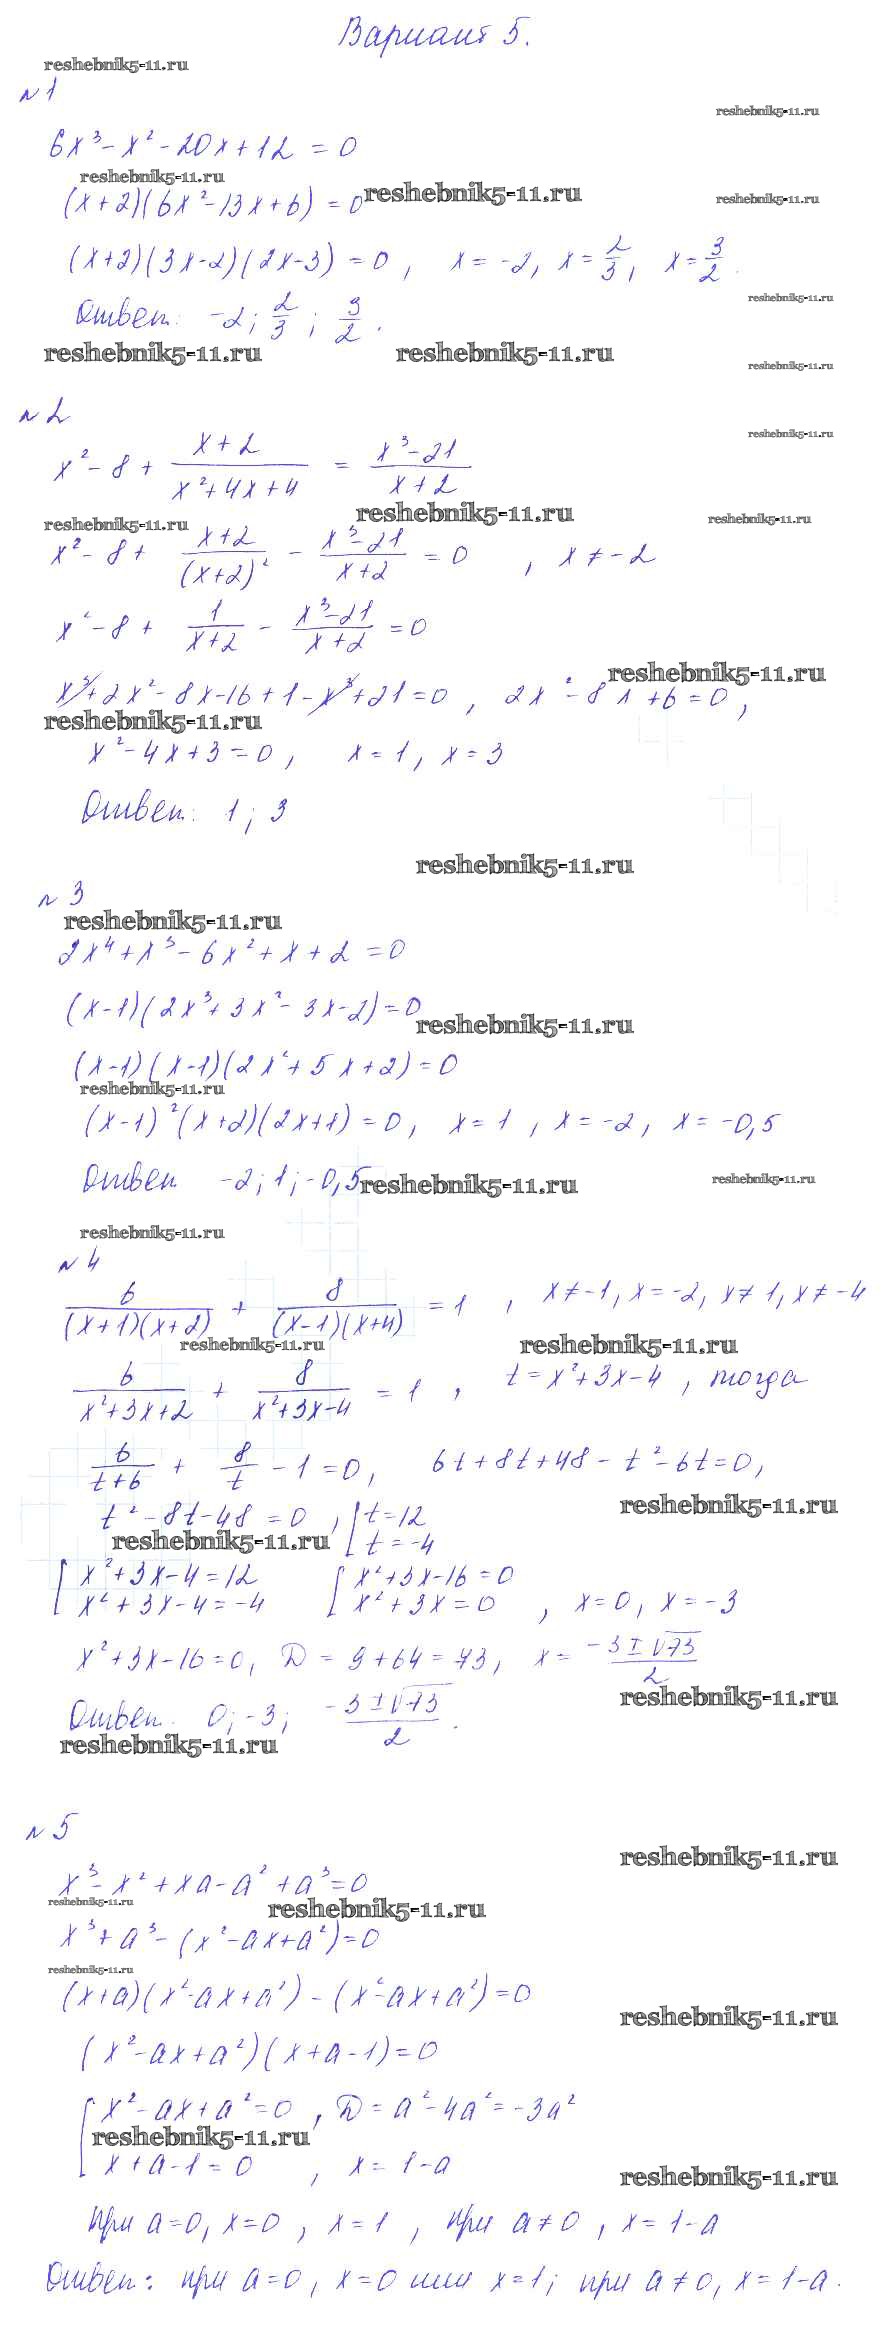 Вариант 5.
reshebnik5-11.ru
№1
reshebnik5-11.ru
6x³ - x² - 20x + 12 = 0
reshebnik5-11.ru
reshebnik5-11.ru
reshebnik5-11.ru
(x+2)(6x² - 13x + 6) = 0
(x+2)(3x-2)(2x-3) = 0, x = -2, x = 2/3, x = 3/2.
reshebnik5-11.ru
Ответ: -2; 2/3; 3/2.
reshebnik5-11.ru
reshebnik5-11.ru
reshebnik5-11.ru
№2
reshebnik5-11.ru
x² - 8 + (x+2)/(x²+4x+4) = (x³-21)/(x+2)
reshebnik5-11.ru
reshebnik5-11.ru
reshebnik5-11.ru
x² - 8 + (x+2)/(x+2)² - (x³-21)/(x+2) = 0, x ≠ -2
x² - 8 + 1/(x+2) - (x³-21)/(x+2) = 0
reshebnik5-11.ru
x³ + 2x² - 8x - 16 + 1 - x³ + 21 = 0, 2x² - 8x + 6 = 0,
reshebnik5-11.ru
x² - 4x + 3 = 0, x = 1, x = 3
Ответ: 1; 3
reshebnik5-11.ru
№3
reshebnik5-11.ru
2x⁴ + x³ - 6x² + x + 2 = 0
(x-1)(2x³ + 3x² - 3x - 2) = 0
reshebnik5-11.ru
(x-1)(x-1)(2x² + 5x + 2) = 0
reshebnik5-11.ru
(x-1)²(x+2)(2x+1) = 0, x = 1, x = -2, x = -0,5
Ответ -2; 1; -0,5
reshebnik5-11.ru
reshebnik5-11.ru
reshebnik5-11.ru
№4
6/((x+1)(x+2)) + 8/((x-1)(x+4)) = 1, x ≠ -1, x = -2, x ≠ 1, x ≠ -4
reshebnik5-11.ru
reshebnik5-11.ru
6/(x²+3x+2) + 8/(x²+3x-4) = 1, t = x²+3x-4, тогда
6/(t+6) + 8/t - 1 = 0, 6t + 8t + 48 - t² - 6t = 0,
reshebnik5-11.ru
t² - 8t - 48 = 0, [t = 12
t = -4
reshebnik5-11.ru
[x²+3x-4 = 12 [x²+3x-16 = 0
x²+3x-4 = -4 x²+3x = 0, x = 0, x = -3
x²+3x-16 = 0, D = 9 + 64 = 73, x = (-3±√73)/2
reshebnik5-11.ru
Ответ. 0; -3; (-3±√73)/2.
reshebnik5-11.ru
№5
reshebnik5-11.ru
x³ - x² + xa - a² + a³ = 0
reshebnik5-11.ru
reshebnik5-11.ru
x³ + a³ - (x² - ax + a²) = 0
reshebnik5-11.ru
(x+a)(x² - ax + a²) - (x² - ax + a²) = 0
reshebnik5-11.ru
(x² - ax + a²)(x + a - 1) = 0
[x² - ax + a² = 0, D = a² - 4a² = -3a²
reshebnik5-11.ru
x + a - 1 = 0, x = 1 - a
reshebnik5-11.ru
при a = 0, x = 0, x = 1, при a ≠ 0, x = 1 - a
Ответ: при a = 0, x = 0 или x = 1; при a ≠ 0, x = 1 - a.